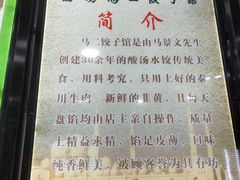 简介
马二饺子馆是由马景文先生
创建30余年的酸汤水饺传统美
食，用料考究，只用上好的秦
川牛肉、新鲜的韭黄，且每天
盘馅均由店主亲自操作，质量
上精益求精，馅足皮薄，口味
纯香鲜美，被顾客誉为具有坊